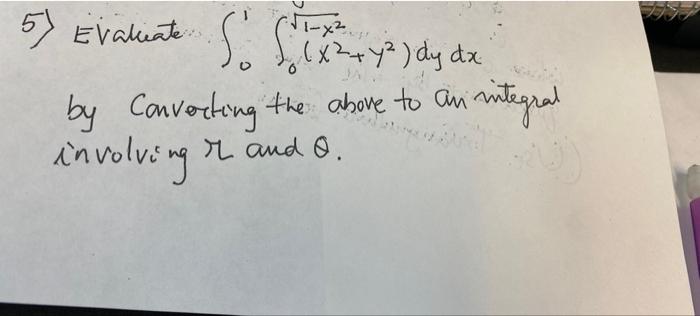 5) Evaluate ∫₀¹ ∫₀^√(1-x²) (x²+y²) dy dx
by Converting the above to an integral
involving r and θ.